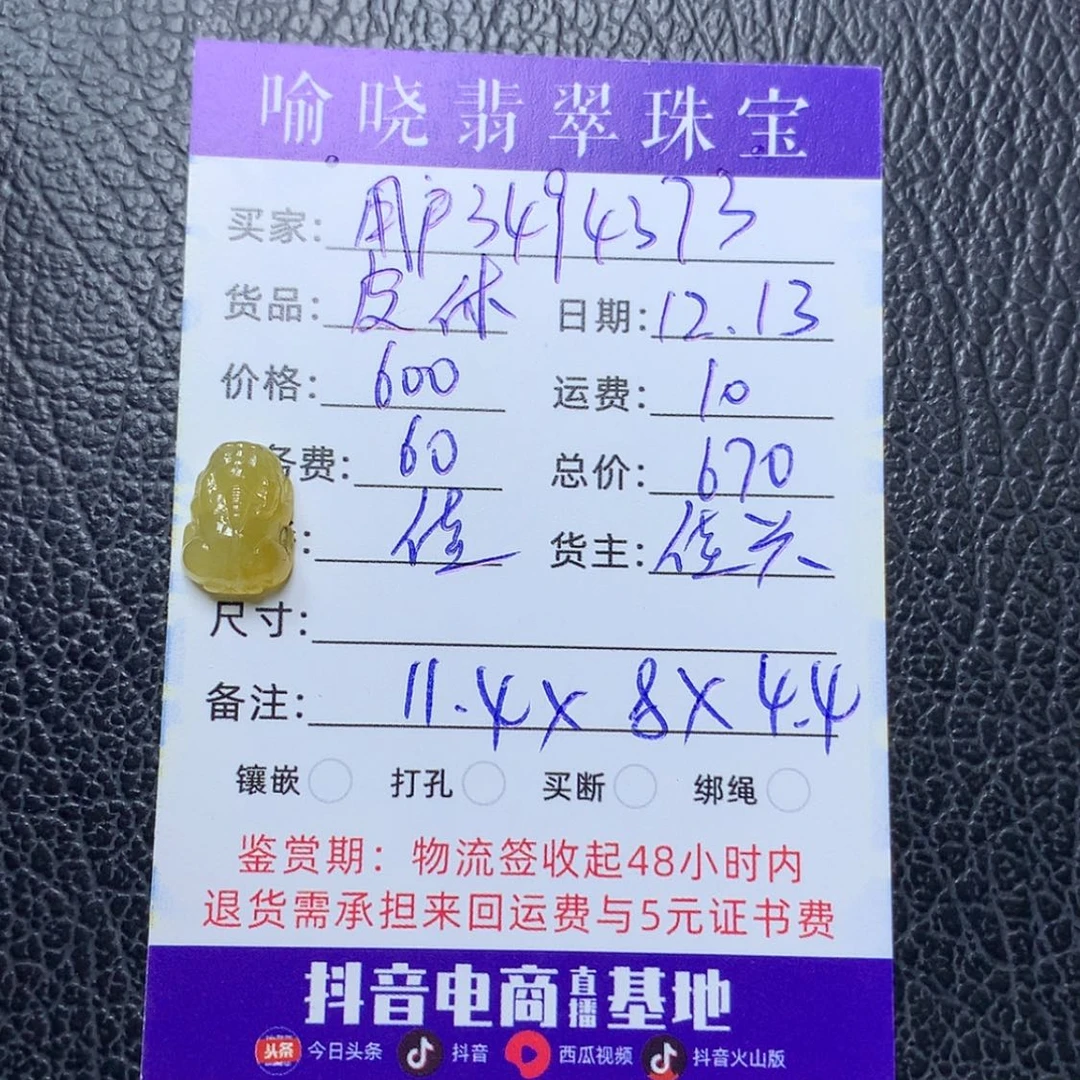 喻晓翡翠珠宝
买家: 用户3494373
货品: 皮休 日期: 12.13
价格: 600 运费: 10
务费: 60 总价: 670
: 佳 货主: 佳兴
尺寸:
备注: 11.4x 8X 4.4
镶嵌 打孔 买断 绑绳
鉴赏期: 物流签收起48小时内
退货需承担来回运费与5元证书费
抖音电商直播基地
头条 今日头条 抖音 西瓜视频 抖音火山版